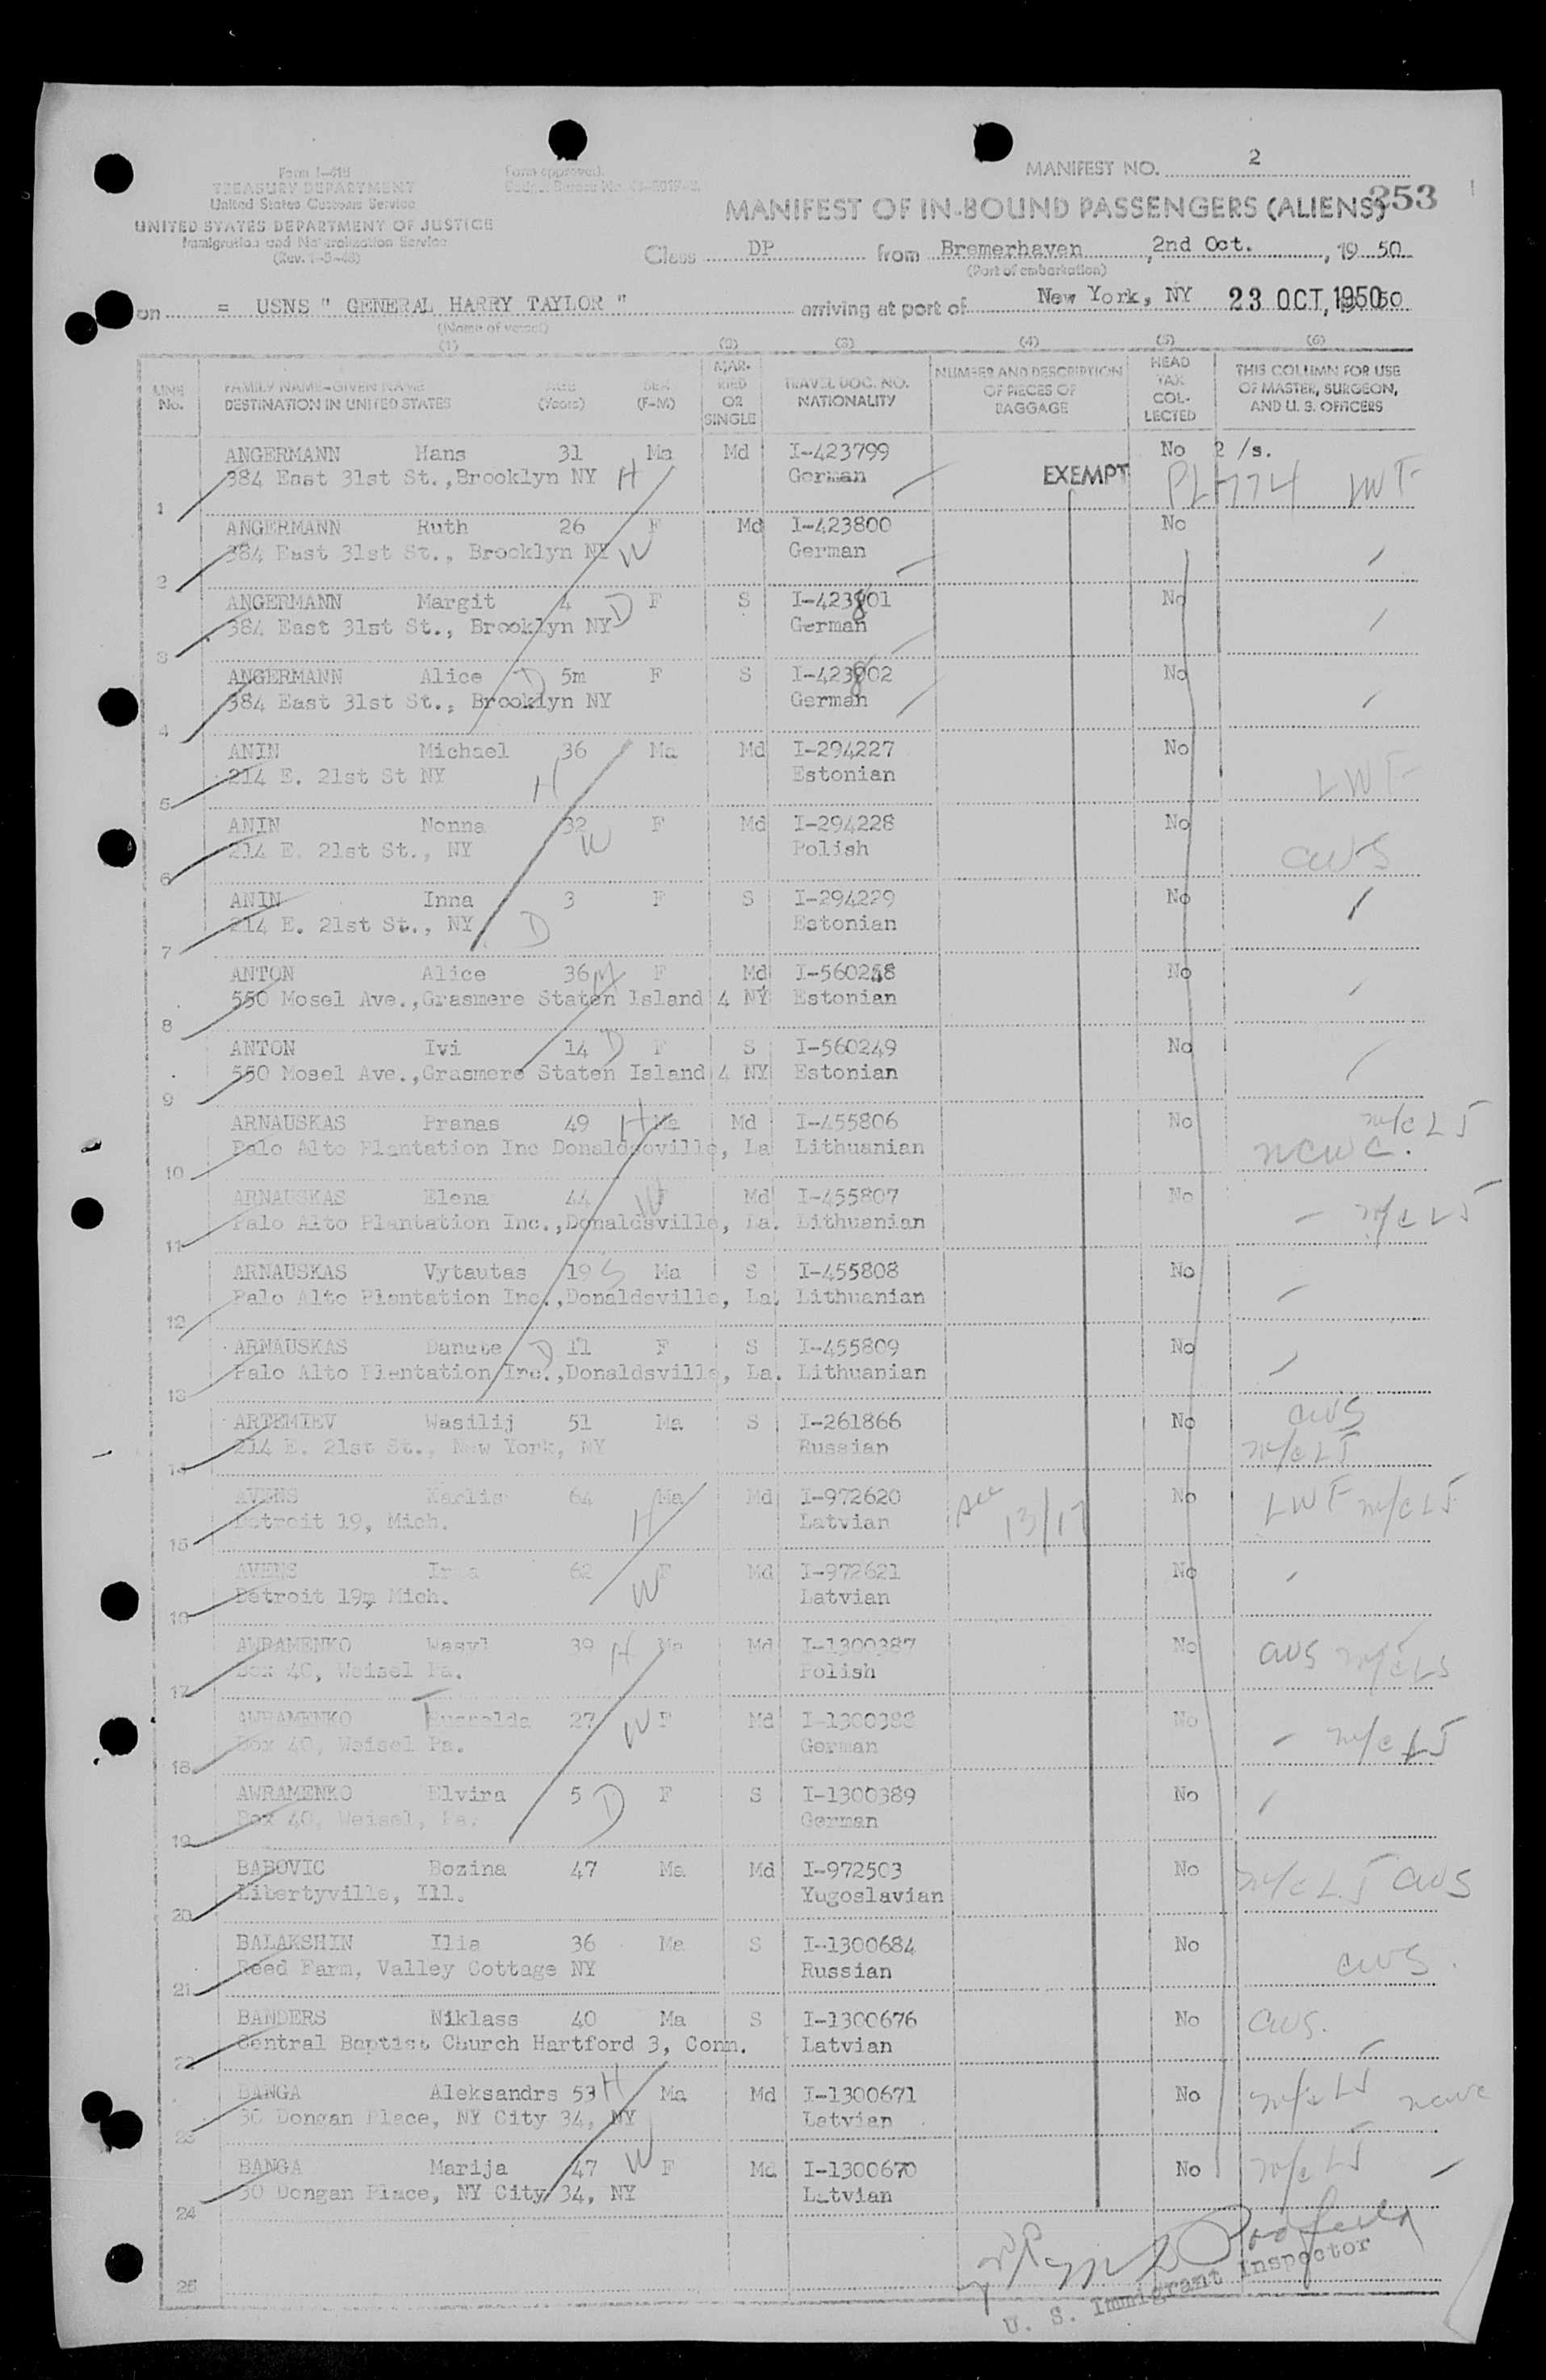 Form I-418
TREASURY DEPARTMENT
United States Customs Service
UNITED STATES DEPARTMENT OF JUSTICE
Immigration and Naturalization Service
(Rev. 1-5-48)
Form approved.
MANIFEST NO. 2
MANIFEST OF IN-BOUND PASSENGERS (ALIENS) 353
Class DP from Bremerhaven, 2nd Oct., 19 50
(Port of embarkation)
on = USNS " GENERAL HARRY TAYLOR " arriving at port of New York, NY 23 OCT, 1950 50
(Name of vessel)
(1) (2) (3) (4) (5) (6)
LINE No.
FAMILY NAME-GIVEN NAME DESTINATION IN UNITED STATES
AGE (Years)
SEX (F-M)
MAR-RIED OR SINGLE
TRAVEL DOC. NO. NATIONALITY
NUMBER AND DESCRIPTION OF PIECES OF BAGGAGE
HEAD TAX COL-LECTED
THIS COLUMN FOR USE OF MASTER, SURGEON, AND U. S. OFFICERS
ANGERMANN Hans 31 Ma Md I-423799 No 2 /s.
1 384 East 31st St.,Brooklyn NY H German EXEMPT PL 774 LWF
ANGERMANN Ruth 26 F Md I-423800 No
2 384 East 31st St., Brooklyn NY W German
ANGERMANN Margit 4 D F S I-423801 No
3 384 East 31st St., Brooklyn NY German
ANGERMANN Alice D 5m F S I-423802 No
4 384 East 31st St., Brooklyn NY German
ANIN Michael 36 Ma Md I-294227 No
5 214 E. 21st St NY H Estonian LWF
ANIN Nonna 32 F Md I-294228 No
6 214 E. 21st St., NY W Polish CWS
ANIN Inna 3 F S I-294229 No
7 214 E. 21st St., NY D Estonian
ANTON Alice 36 M F Md I-560248 No
8 550 Mosel Ave.,Grasmere Staten Island 4 NY Estonian
ANTON Ivi 14 D F S I-560249 No
9 550 Mosel Ave.,Grasmere Staten Island 4 NY Estonian
ARNAUSKAS Pranas 49 H Ma Md I-455806 No m/c LJ
10 Palo Alto Plantation Inc Donaldsoville, La Lithuanian NCWC.
ARNAUSKAS Elena 44 W F Md I-455807 No
11 Palo Alto Plantation Inc.,Donaldsville, La. Lithuanian m/c LJ
ARNAUSKAS Vytautas 19 S Ma S I-455808 No
12 Palo Alto Plantation Inc.,Donaldsville, La. Lithuanian
ARNAUSKAS Danute D 11 F S I-455809 No
13 Palo Alto Plantation Inc.,Donaldsville, La. Lithuanian
ARTEMIEV Wasilij 51 Ma S I-261866 No CWS
14 214 E. 21st St., New York, NY Russian m/c LJ
AVENS Karlis 64 Ma Md I-972620 No LWF m/c LJ
15 Detroit 19, Mich. H Latvian 13/17
AVENS 62 F Md I-972621 No
16 Detroit 19m Mich. W Latvian
AWRAMENKO Wasyl 39 H Ma Md I-1300387 No CWS m/c LJ
17 Box 40, Weisel Pa. Polish
AWRAMENKO 27 W F Md I-1300388 No
18 Box 40, Weisel Pa. German m/c LJ
AWRAMENKO Elvira 5 D F S I-1300389 No
19 Box 40, Weisel, Pa. German
BABOVIC Bozina 47 Ma Md I-972503 No m/c LJ CWS
20 Libertyville, Ill. Yugoslavian
BALAKSHIN Ilia 36 Ma S I-1300684 No
21 Reed Farm, Valley Cottage NY Russian CWS.
BANDERS Niklass 40 Ma S I-1300676 No CWS.
22 Central Baptist Church Hartford 3, Conn. Latvian
BANGA Aleksandrs 53 H Ma Md I-1300671 No m/c LJ NCWC
23 30 Dongan Place, NY City 34, NY Latvian
BANGA Marija 47 W F Md I-1300670 No m/c LJ
24 30 Dongan Place, NY City 34, NY Latvian
25
U. S. Immigrant Inspector